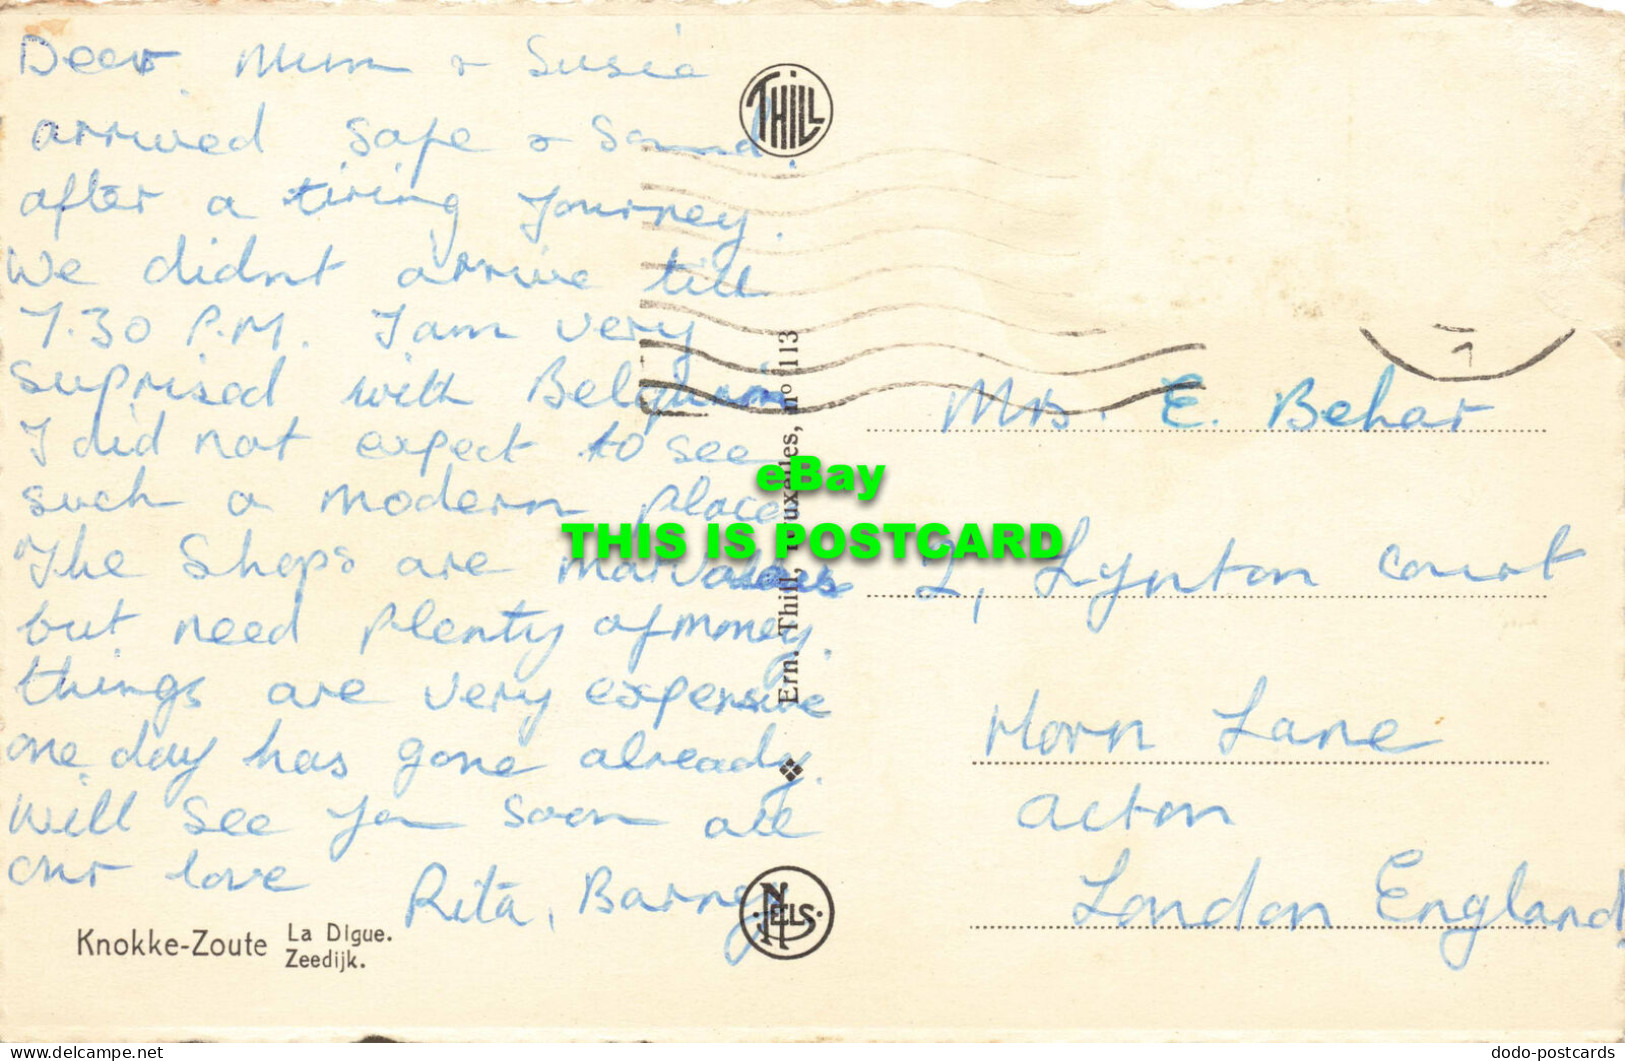 Dear Mum & Susie
arrived safe & Sound.
after a tiring Journey.
We didnt arrive till
7.30 P.M. I am very
suprised with Belgium
I did not expect to see
such a modern place
The Shops are marvolous
but need plenty of money.
things are very expensive
one day has gone already.
Will see you soon all
our love Rita, Barney
Knokke-Zoute La Digue.
Zeedijk.
THILL
Ern. Thill, Bruxelles, nº 113
NELS
eBay
THIS IS POSTCARD
Mrs. E. Behar
2, Lynton Court
Horn Lane
Acton
London England
delcampe.net
dodo-postcards